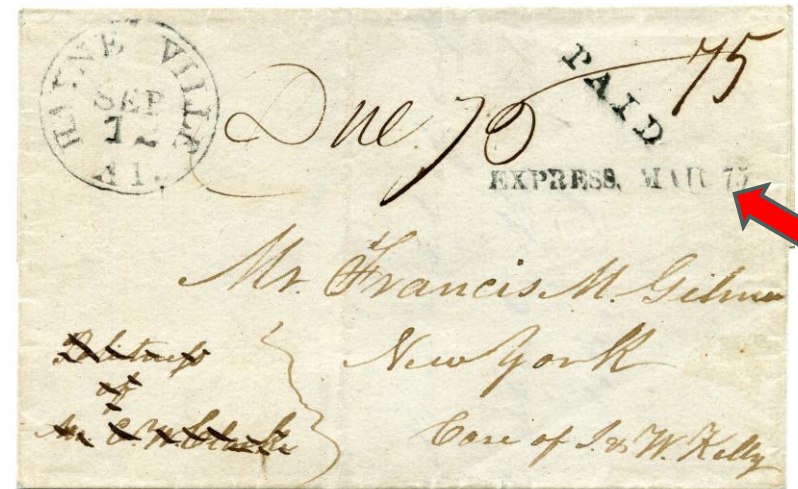 HAYNE VILLE
SEP
12
Al.
Due 75
PAID
75
EXPRESS, MAIL 75
Mr. Francis M. Gilmer
New York
Care of J. & W. Kelly
Politeness
of
Mr. C. W. Clarke